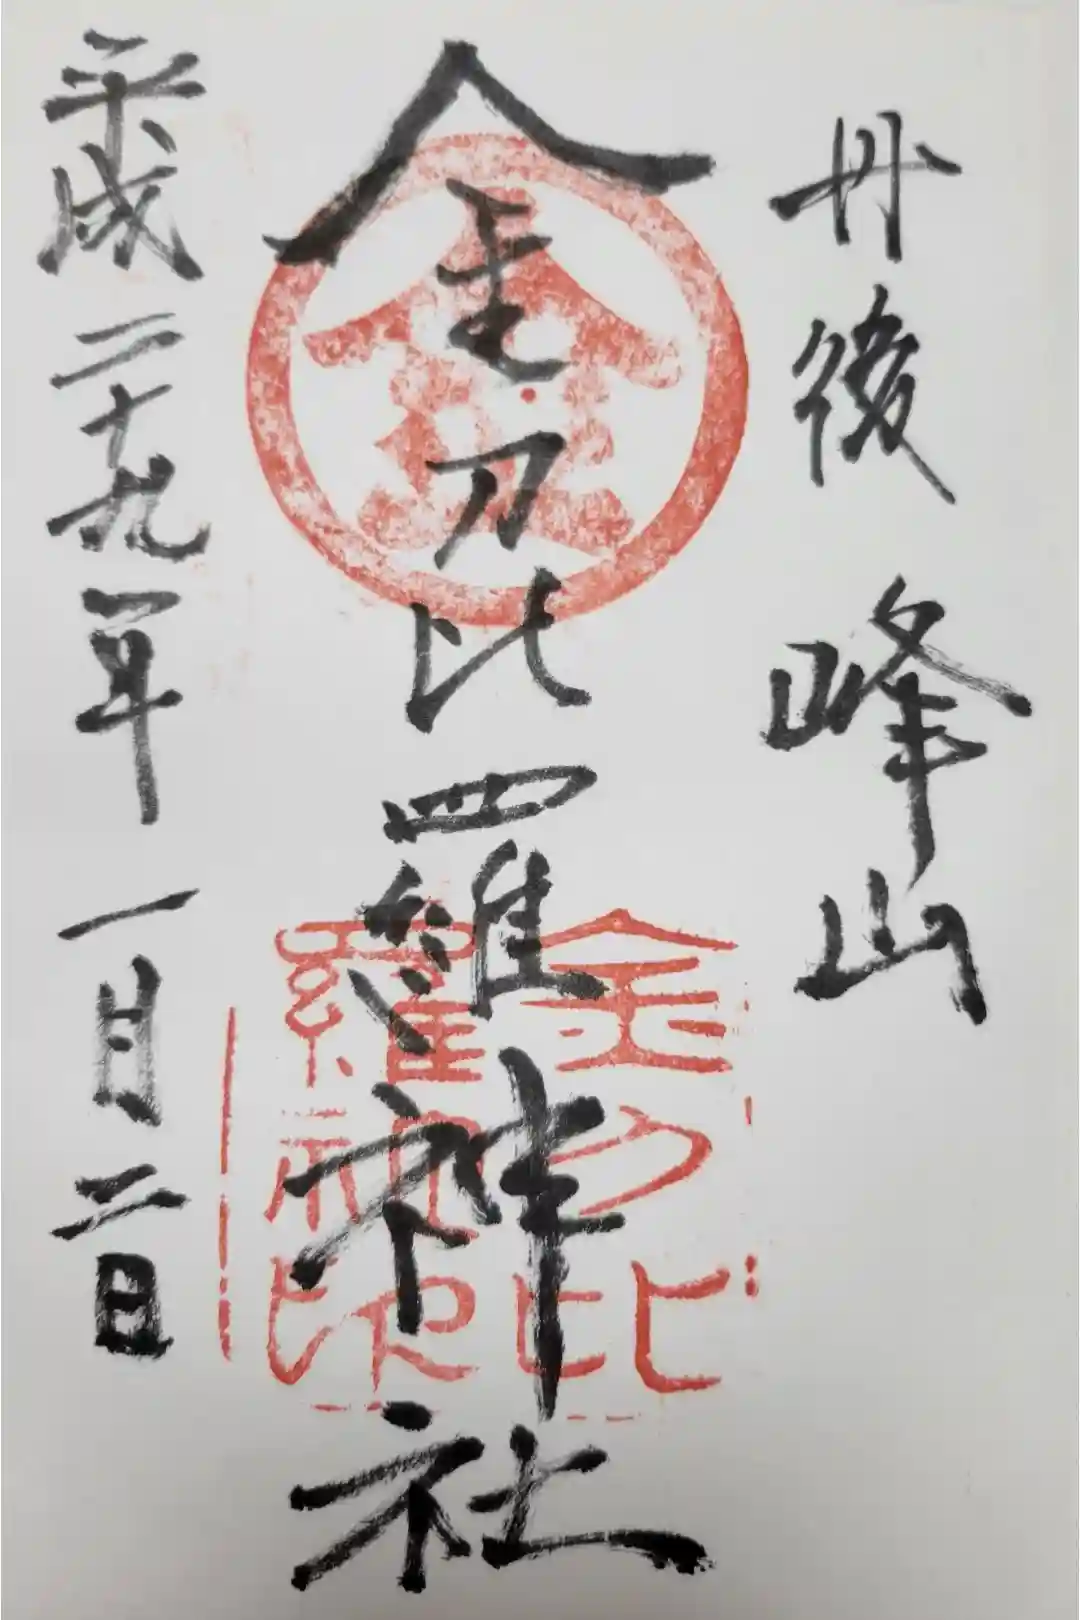 丹後 峰山
金刀比羅神社
平成二十九年一月二日
金
金刀比
羅神社印